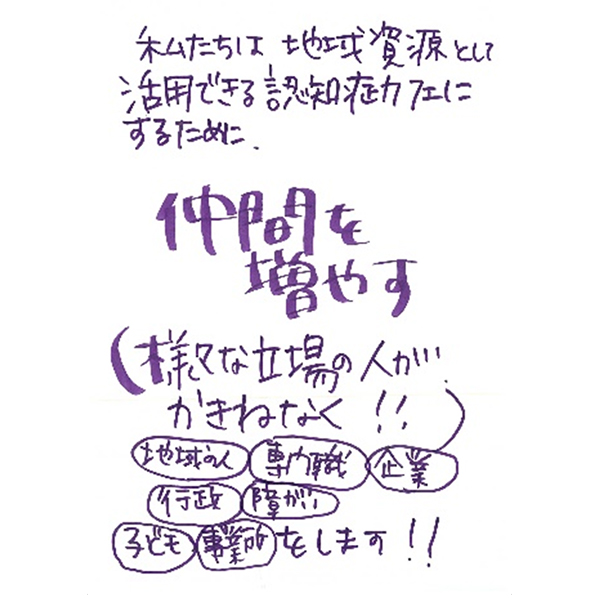 私たちは 地域資源として
活用できる認知症カフェに
するために、
仲間を
増やす
(様々な立場の人が
かきねなく!!)
地域の人 専門職 企業
行政 障がい
子ども 事業所 をします!!